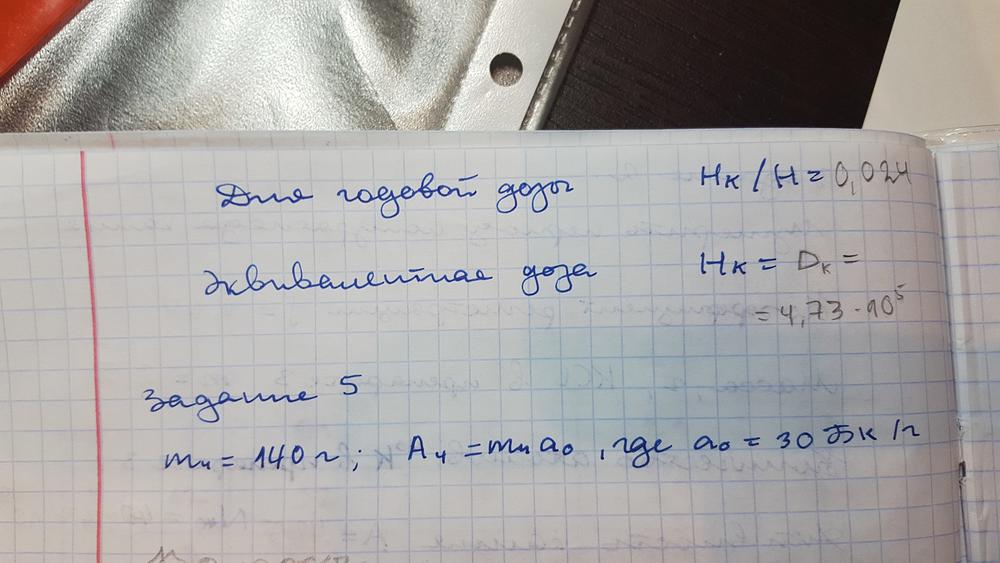 Для годовой дозы Hк / H = 0,024
Эквивалентная доза Hк = Dк =
= 4,73 · 10⁵
Задание 5
mч = 140 г ; Aч = mч a₀ , где a₀ = 30 Бк / г